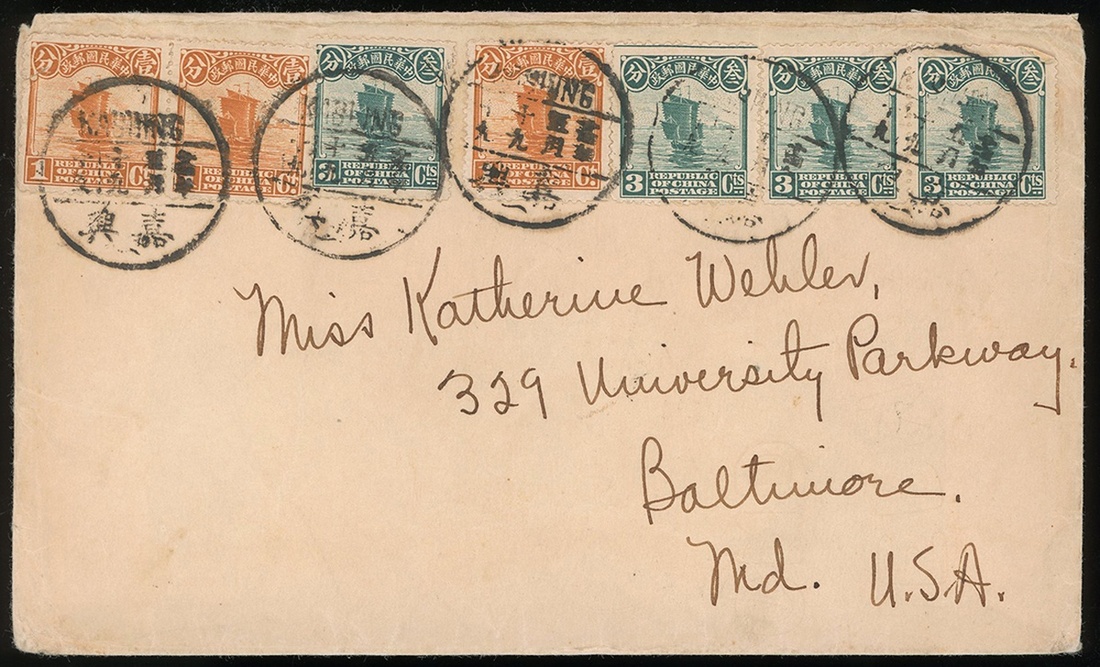 中華民國郵政
壹 分
1 Ct
REPUBLIC
OF CHINA
POSTAGE
中華民國郵政
壹 分
REPUBLIC
OF CHINA
POSTAGE
中華民國郵政
叁 分
3 Cts
REPUBLIC
OF CHINA
POSTAGE
中華民國郵政
分
REPUBLIC
OF CHINA
POSTAGE
中華民國郵政
叁 分
3 Cts
REPUBLIC
OF CHINA
POSTAGE
中華民國郵政
叁 分
3 Cts
REPUBLIC
OF CHINA
POSTAGE
中華民國郵政
叁 分
3 Cts
REPUBLIC
OF CHINA
POSTAGE
KASHING
嘉興
KASHING
嘉
Miss Katherine Wehler,
329 University Parkway.
Baltimore.
Md. U.S.A.